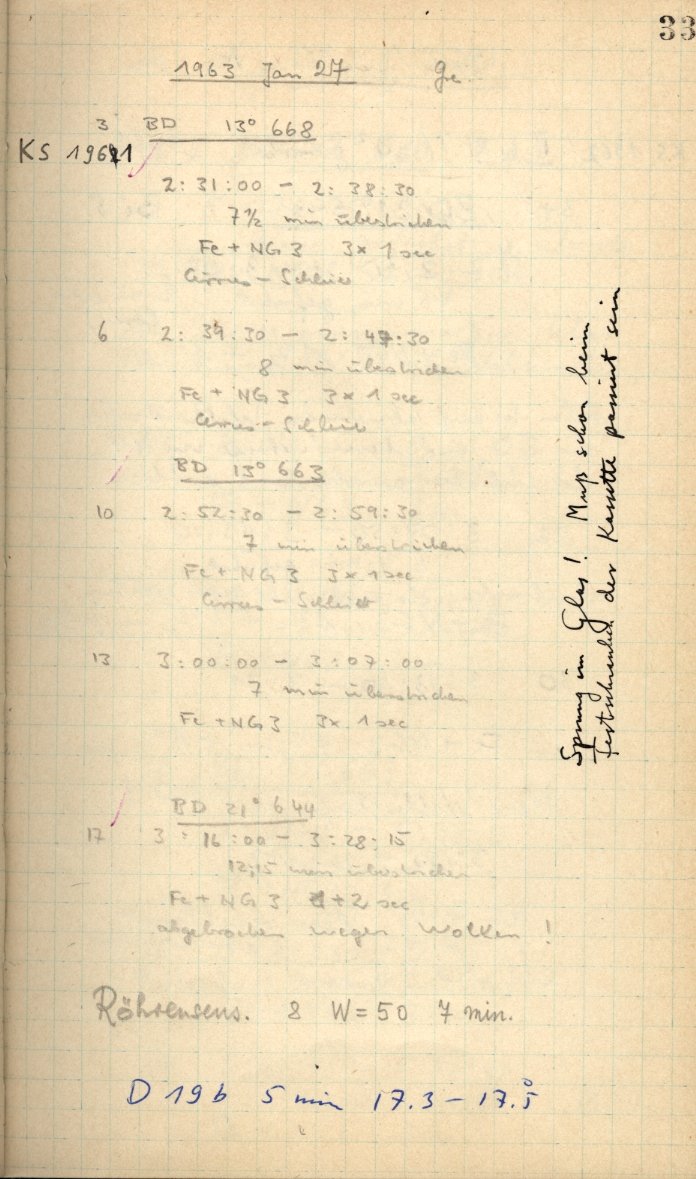 33
1963 Jan 27 Ge
3 BD 13° 668
KS 1961
2:31:00 - 2:38:30
7½ min überstrichen
Fe + NG 3 3x 1 sec
Cirrus - Schleier
6 2:39:30 - 2:47:30
8 min überstrichen
Fe + NG 3 3x 1 sec
Cirrus - Schleier
BD 13° 663
10 2:52:30 - 2:59:30
7 min überstrichen
Fe + NG 3 3x 1 sec
Cirrus - Schleier
13 3:00:00 - 3:07:00
7 min überstrichen
Fe + NG 3 3x 1 sec
BD 21° 644
17 3:16:00 - 3:28:15
12;15 min überstrichen
Fe + NG 3 + 2 sec
abgebrochen wegen Wolken!
Röhrensens. 8 W = 50 7 min.
D 19 b 5 min 17.3 - 17.5°
Sprung im Glas! Muß schon beim
der Kassette passiert sein